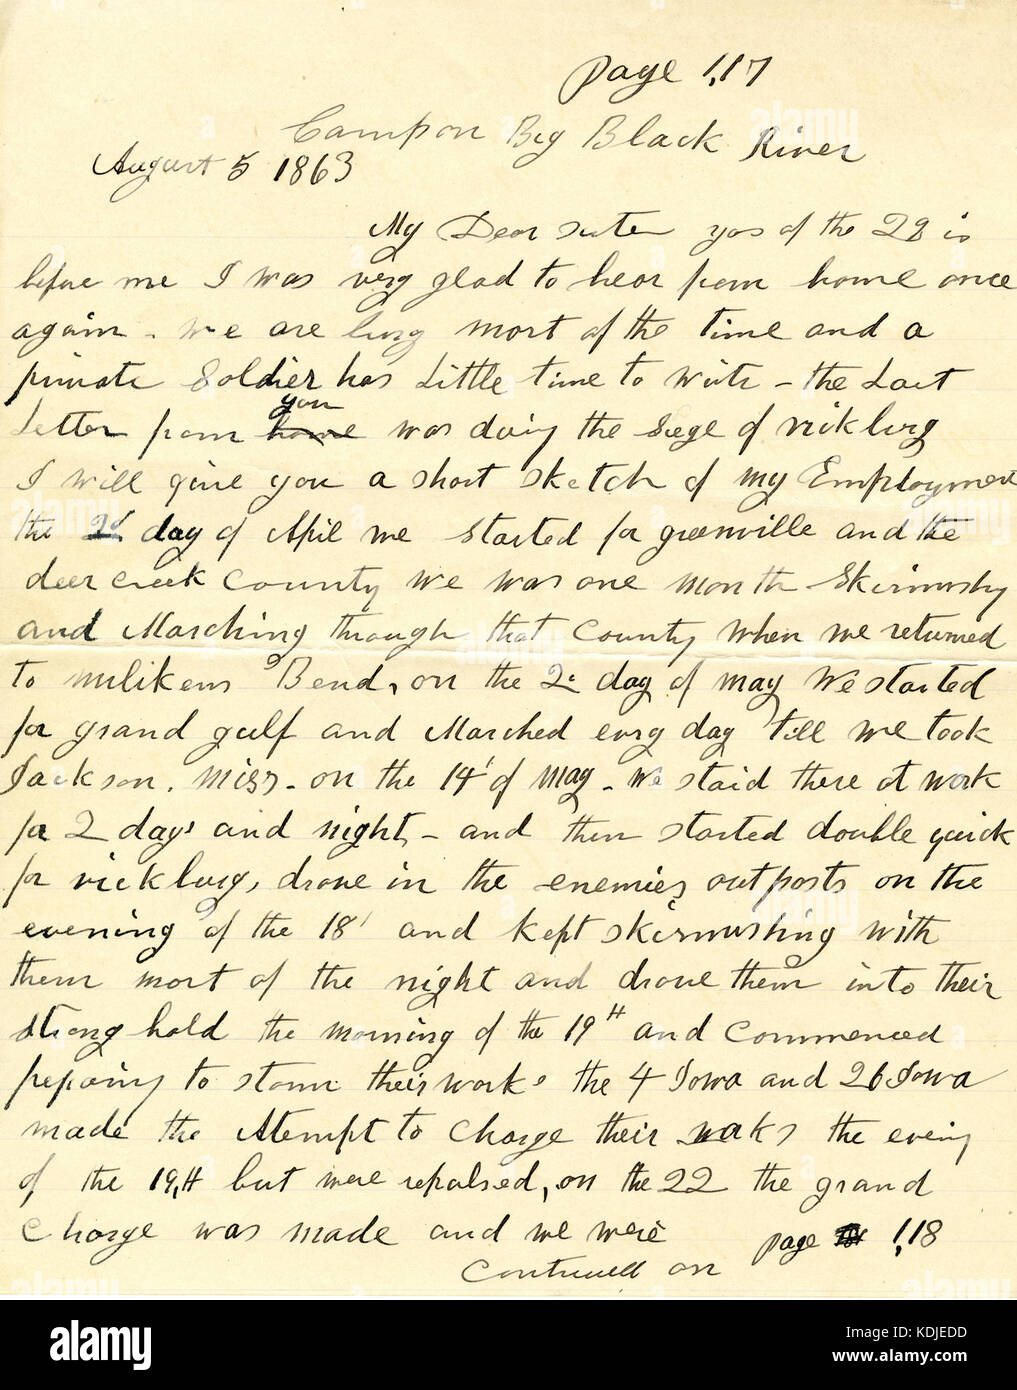 page 1,17
Camp on Big Black River
August 5 1863
My Dear sister yos of the 28 is
before me I was very glad to hear from home once
again - we are busy most of the time and a
private Soldier has Little time to write - the Last
you
Letter from home was duing the Siege of vicksburg
I will give you a short sketch of my Employment
the 2d day of April we started for greenville and the
deer creek county we was one month Skirmishg
and Marching through that county when we returned
to milikens Bend, on the 2d day of may We started
for grand gulf and Marched evry day till we took
Jackson, Miss - on the 14' of May - we staid there at work
for 2 days and night - and then started double quick
for vicksburg, drove in the enemies outposts on the
evening of the 18' and kept skirmishing with
them most of the night and drove them into their
strong hold the morning of the 19th and commenced
prepairing to storm their works the 4 Iowa and 26 Iowa
made the Atempt to Charge their works the evenig
of the 19th but were repalsed, on the 22 the grand
Charge was made and we were
page 1,18
Continuell on
alamy
Image ID: KDJEDD
www.alamy.com